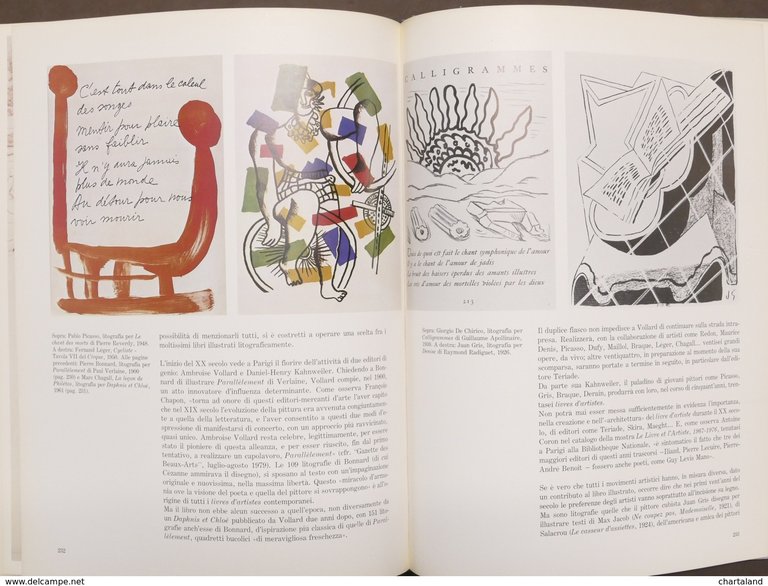 C'est tout dans le calcul
des songes
mentir pour plaire
sans faiblir
Il n'y aura jamais
plus de monde
Au détour pour nous
voir mourir
Sopra: Pablo Picasso, litografia per Le
chant des morts di Pierre Reverdy, 1948.
A destra: Fernand Leger, Cycliste -
Tavola VII del Cirque, 1950. Alle pagine
precedenti: Pierre Bonnard, litografia per
Parallèlement di Paul Verlaine, 1900
(pag. 230) e Marc Chagall, La leçon de
Philétas, litografia per Daphnis et Chloé,
1961 (pag. 231).
possibilità di menzionarli tutti, si è costretti a operare una scelta fra i
moltissimi libri illustrati litograficamente.
L'inizio del XX secolo vede a Parigi il fiorire dell'attività di due editori di
genio: Ambroise Vollard e Daniel-Henry Kahnweiler. Chiedendo a Bon-
nard di illustrare Parallèlement di Verlaine, Vollard compie, nel 1900,
un atto innovatore d'influenza determinante. Come osserva François
Chapon, «torna ad onore di questi editori-mercanti d'arte l'aver capito
che nel XIX secolo l'evoluzione della pittura era avvenuta congiuntamen-
te a quella della letteratura, e l'aver consentito a questi due modi d'e-
spressione di manifestarsi di concerto, con un approccio più ravvicinato,
quasi unico. Ambroise Vollard resta celebre, legittimamente, per essere
stato il pioniere di questa alleanza, e per esser riuscito, fin dal primo
tentativo, a realizzare un capolavoro, Parallèlement» (cfr. "Gazette des
Beaux-Arts", luglio-agosto 1979). Le 109 litografie di Bonnard (di cui
Cézanne ammirava il disegno), si sposano al testo con un'impaginazione
originale e nuovissima, nella massima libertà. Questo «miracolo d'armo-
nia ove la visione del poeta e quella del pittore si sovrappongono» è all'o-
rigine di tutti i livres d'artistes contemporanei.
Ma il libro non ebbe alcun successo a quell'epoca, non diversamente da
un Daphnis et Chloé pubblicato da Vollard due anni dopo, con 151 lito-
grafie anch'esse di Bonnard, d'ispirazione più classica di quelle di Paral-
lèlement, quadretti bucolici «di meravigliosa freschezza».
232
CALLIGRAMMES
de quoi est fait le chant symphonique de l'amour
Il y a le chant de l'amour de jadis
Le bruit des baisers éperdus des amants illustres
Les cris d'amour des mortelles violées par les dieux
213
J G
Sopra: Giorgio De Chirico, litografia per
Calligrammes di Guillaume Apollinaire,
1930. A destra: Juan Gris, litografia per
Denise di Raymond Radiguet, 1926.
Il duplice fiasco non impedisce a Vollard di continuare sulla strada intra-
presa. Realizzerà, con la collaborazione di artisti come Redon, Maurice
Denis, Picasso, Dufy, Maillol, Braque, Leger, Chagall... ventisei grandi
opere, da vivo; altre ventiquattro, in preparazione al momento della sua
scomparsa, saranno portate a termine in seguito, in particolare dall'edi-
tore Tériade.
Da parte sua Kahnweiler, il paladino di giovani pittori come Picasso,
Gris, Braque, Derain, produrrà con loro, nel corso di cinquant'anni, tren-
tasei livres d'artistes.
Non potrà mai esser messa sufficientemente in evidenza l'importanza,
nella creazione e nell'«architettura» del livre d'artiste durante il XX seco-
lo, di editori come Tériade, Skira, Maeght... E, come osserva Antoine
Coron nel catalogo della mostra Le Livre et l'Artiste, 1967-1976, tenutasi
a Parigi alla Bibliothèque Nationale, «è sintomatico il fatto che tre dei
maggiori editori di questi anni trascorsi – Iliazd, Pierre Lecuire, Pierre-
André Benoit – fossero anche poeti, come Guy Lévis Mano».
Se è vero che tutti i movimenti artistici hanno, in misura diversa, dato
un contributo al libro illustrato, occorre dire che nei primi vent'anni del
secolo le preferenze degli artisti vanno soprattutto all'incisione su legno.
Ma sono litografie quelle che il pittore cubista Juan Gris disegna per
illustrare testi di Max Jacob (Ne coupez pas, Mademoiselle, 1921), di
Salacrou (Le casseur d'assiettes, 1924), dell'americana e amica dei pittori
233
www.delcampe.net
chartaland